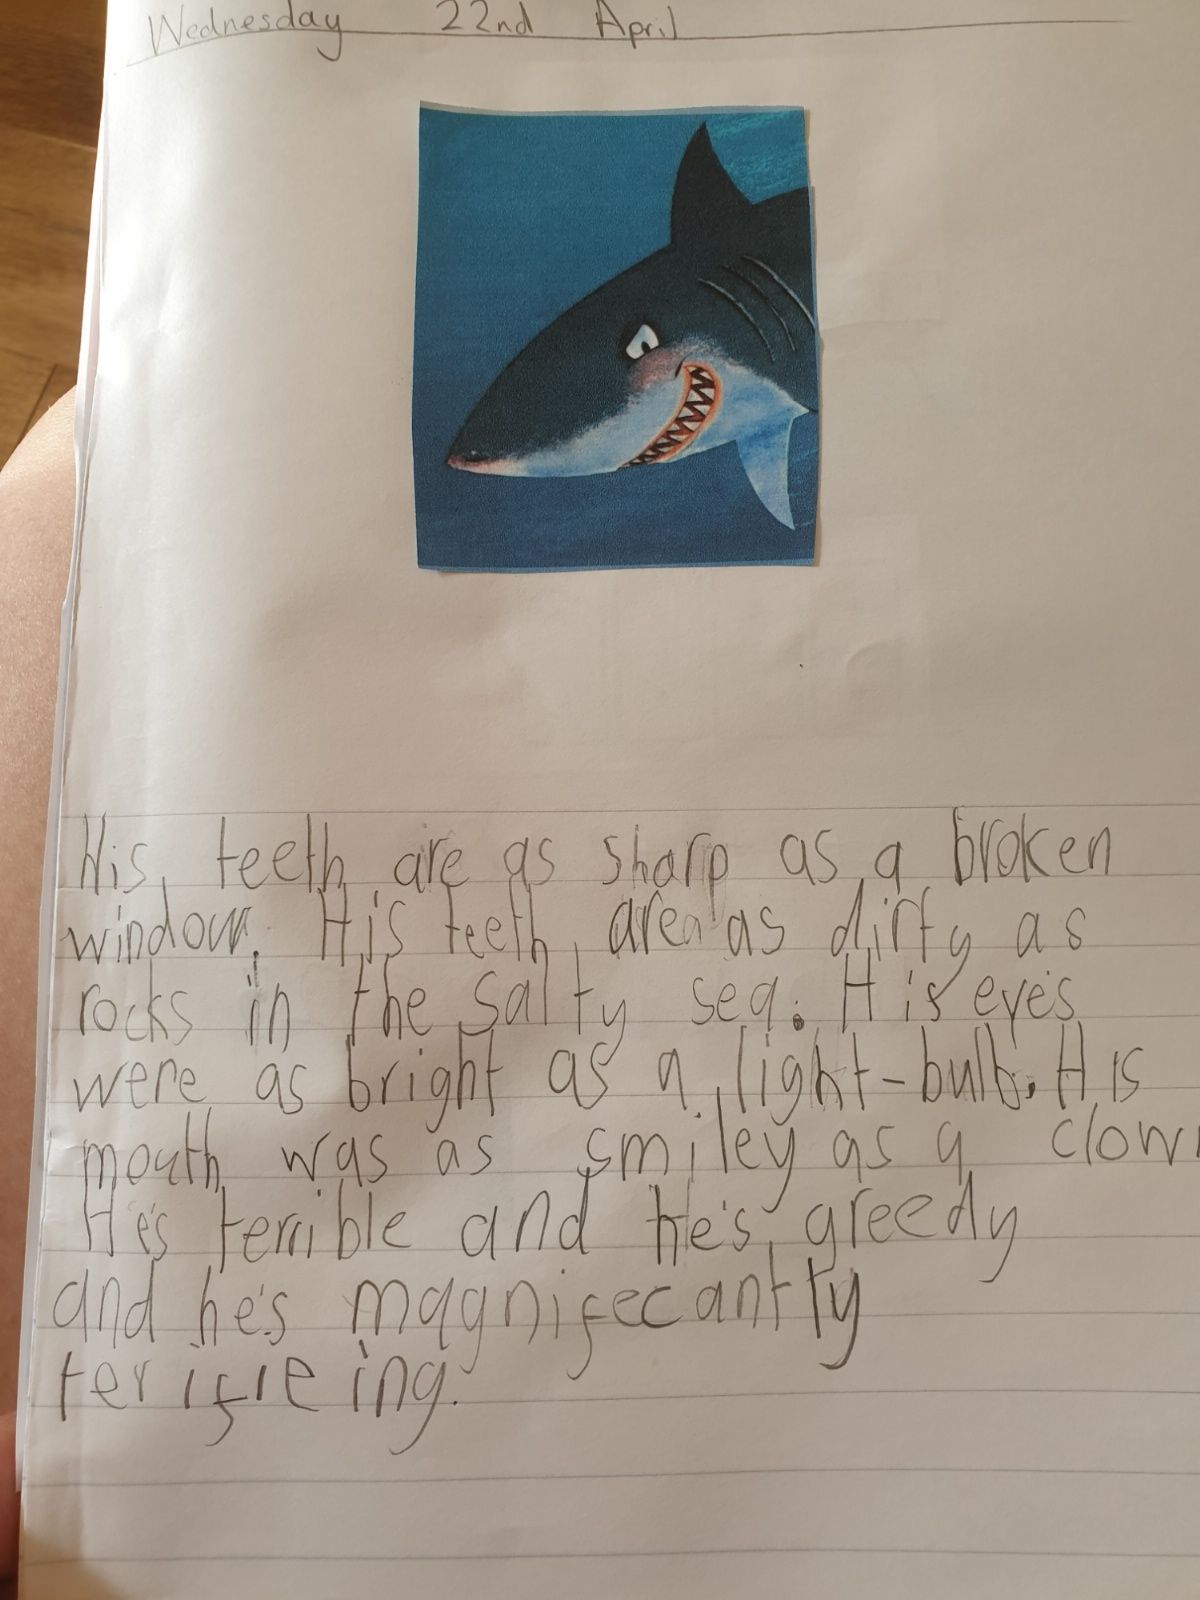 Wednesday 22nd April
His teeth are as sharp as a broken
window. His teeth area as dirty as
rocks in the salty sea. His eyes
were as bright as a light-bulb. His
mouth was as smiley as a clown
He's terrible and he's greedy
and he's magnifecantly
terifieing.